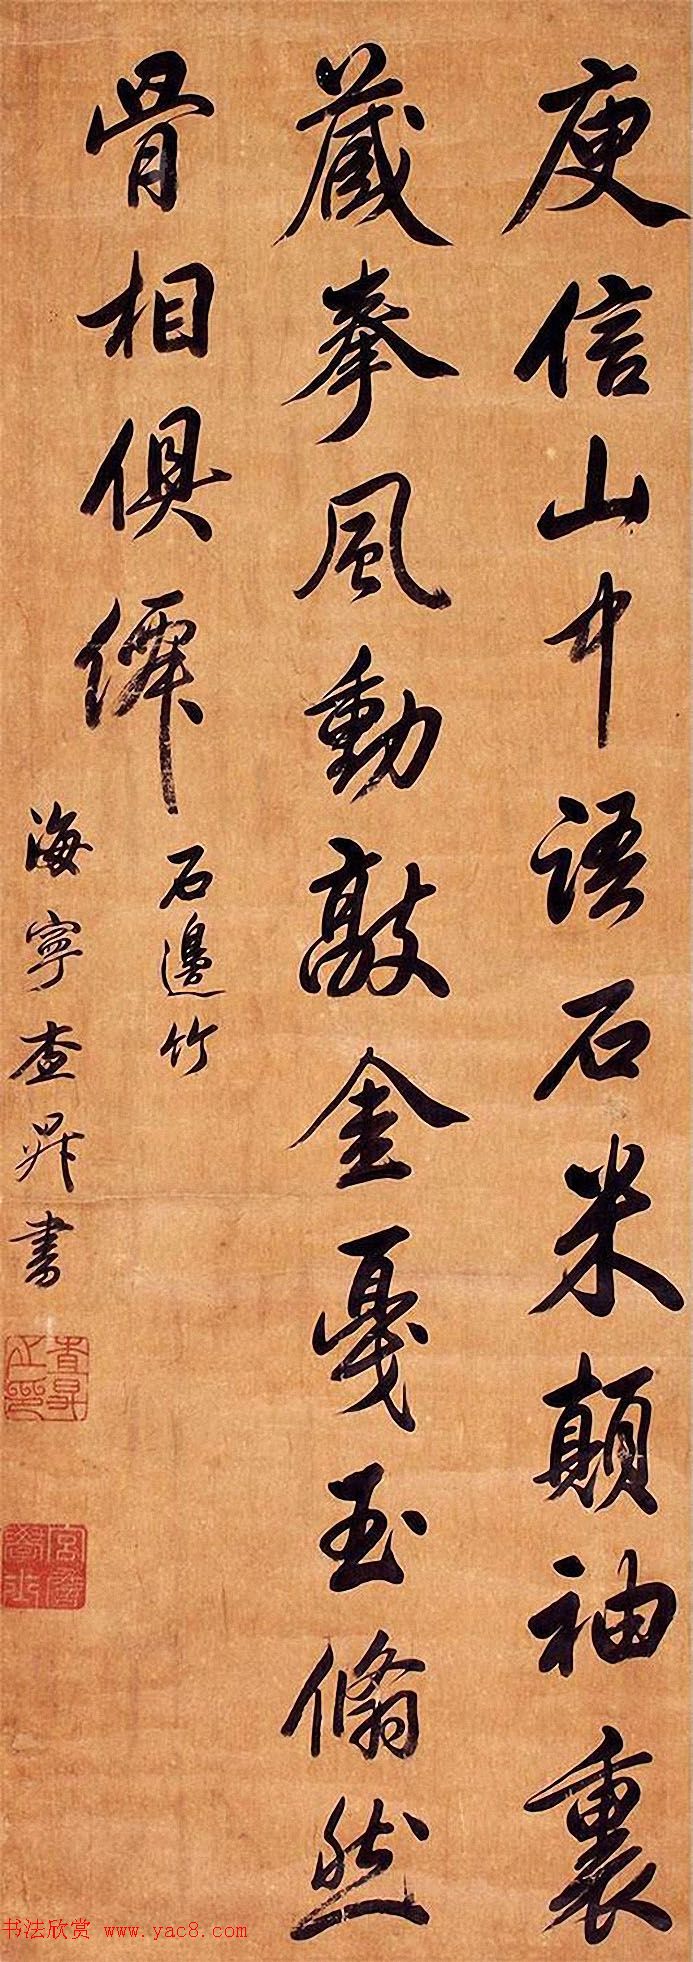 庾信山中語石米顛袖裏
藏拳風動敲金戛玉翛然
骨相俱僊
石邊竹
海寧查昇書
查昇之印
书法欣赏 www.yac8.com